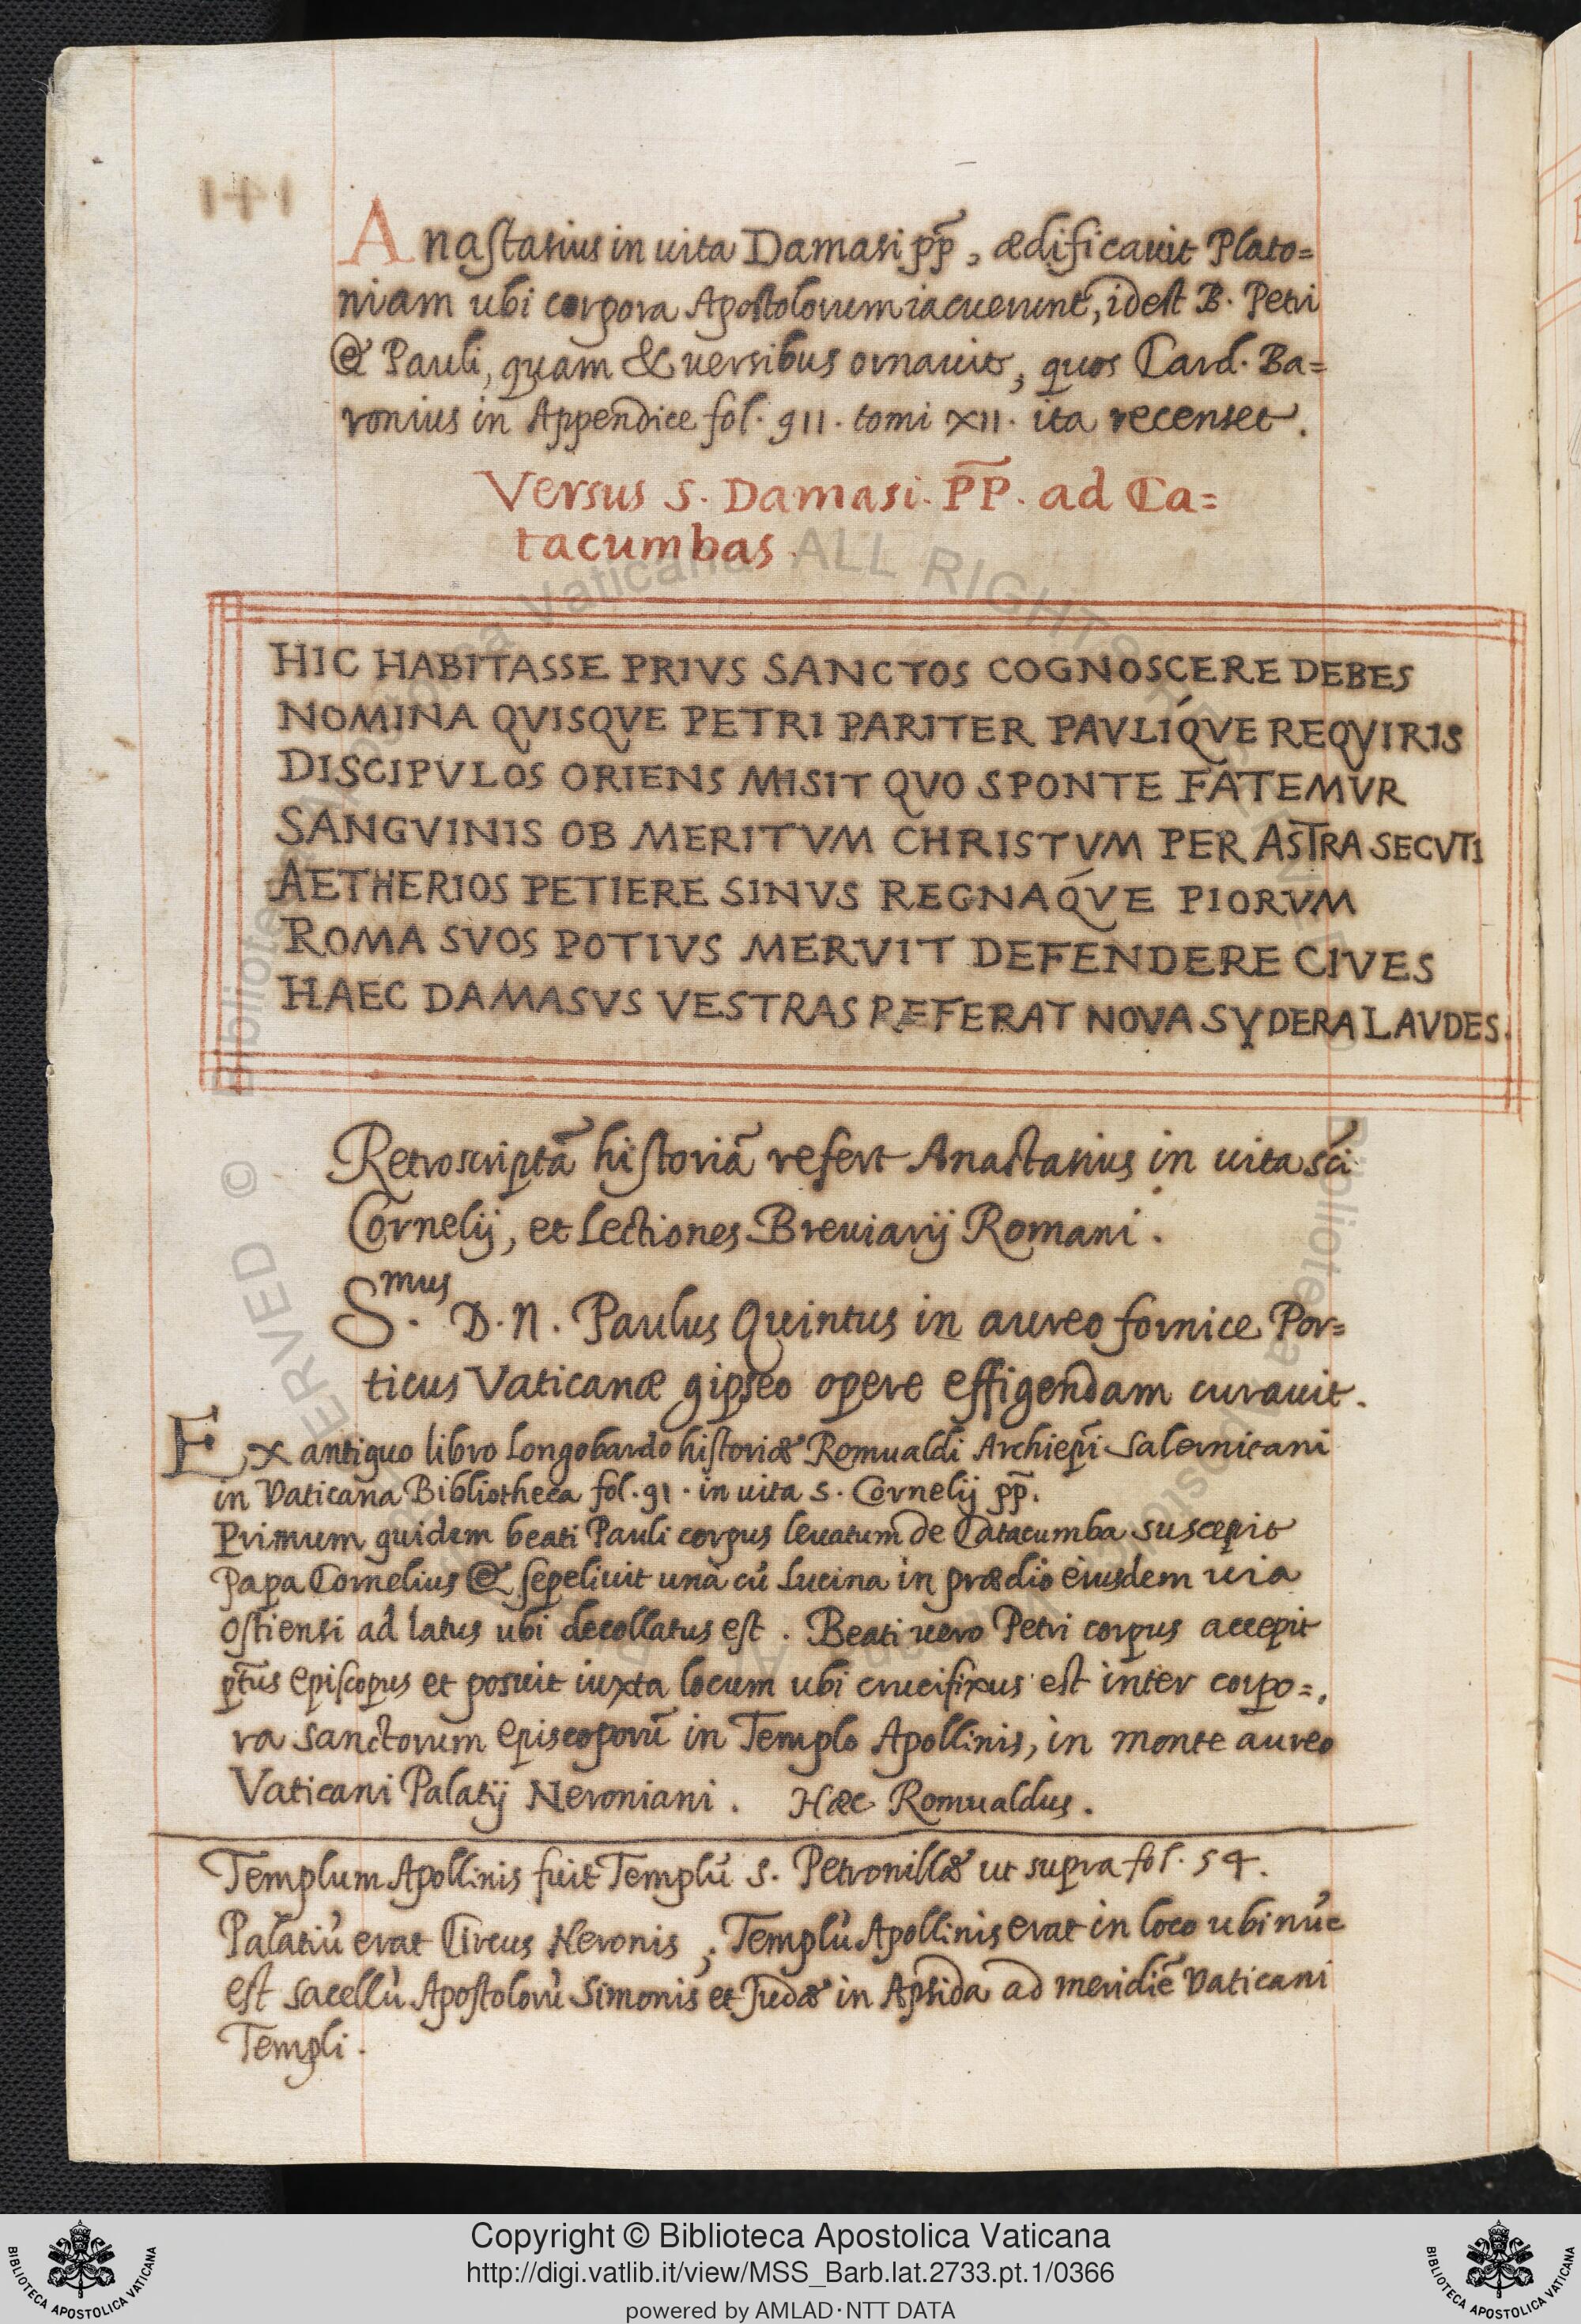 Anastasius in uita Damasi pp̄, ædificauit Plato=
niam ubi corpora Apostolorum iacuerunt, idest B. Petri
& Pauli, quam & uersibus ornauit, quos Card. Ba=
ronius in Appendice fol. 911. tomi XII. ita recenset.
Versus S. Damasi. P̄P̄. ad Ca=
tacumbas.
HIC HABITASSE PRIVS SANCTOS COGNOSCERE DEBES
NOMINA QVISQVE PETRI PARITER PAVLIQ́VE REQVIRIS
DISCIPVLOS ORIENS MISIT QVO SPONTE FATEMVR
SANGVINIS OB MERITVM CHRISTVM PER ASTRA SECVTI
AETHERIOS PETIERE SINVS REGNAQ́VE PIORVM
ROMA SVOS POTIVS MERVIT DEFENDERE CIVES
HAEC DAMASVS VESTRAS REFERAT NOVA SYDERA LAVDES.
Retroscriptā historiā refert Anastasius in uita sc̄i
Cornelij, et Lectiones Breuiarij Romani.
S.mus D. N. Paulus Quintus in aureo fornice Por=
ticus Vaticanæ gipseo opere effigendam curauit.
Ex antiquo libro Longobardo historiæ Romualdi Archiep̄i Salernitani
in Vaticana Bibliotheca fol. 91. in uita S. Cornelij pp̄.
Primum quidem beati Pauli corpus leuatum de Catacumba suscepit
Papa Cornelius & sepeliuit unà cū Lucina in prædio eiusdem uia
Ostiensi ad latus ubi decollatus est. Beati uero Petri corpus accepit
p̄tus episcopus et posuit iuxta locum ubi crucifixus est inter corpo=
ra sanctorum episcoporū in Templo Apollinis, in monte aureo
Vaticani Palatij Neroniani. Hæc Romualdus.
Templum Apollinis fuit Templū S. Petronillæ ut supra fol. 54.
Palatiū erat Circus Neronis; Templū Apollinis erat in loco ubi nūc
est sacellū Apostolorū Simonis et Judæ in Apsida ad meridiē Vaticani
Templi.
Copyright © Biblioteca Apostolica Vaticana
http://digi.vatlib.it/view/MSS_Barb.lat.2733.pt.1/0366
powered by AMLAD·NTT DATA
BIBLIOTECA APOSTOLICA VATICANA
BIBLIOTECA APOSTOLICA VATICANA